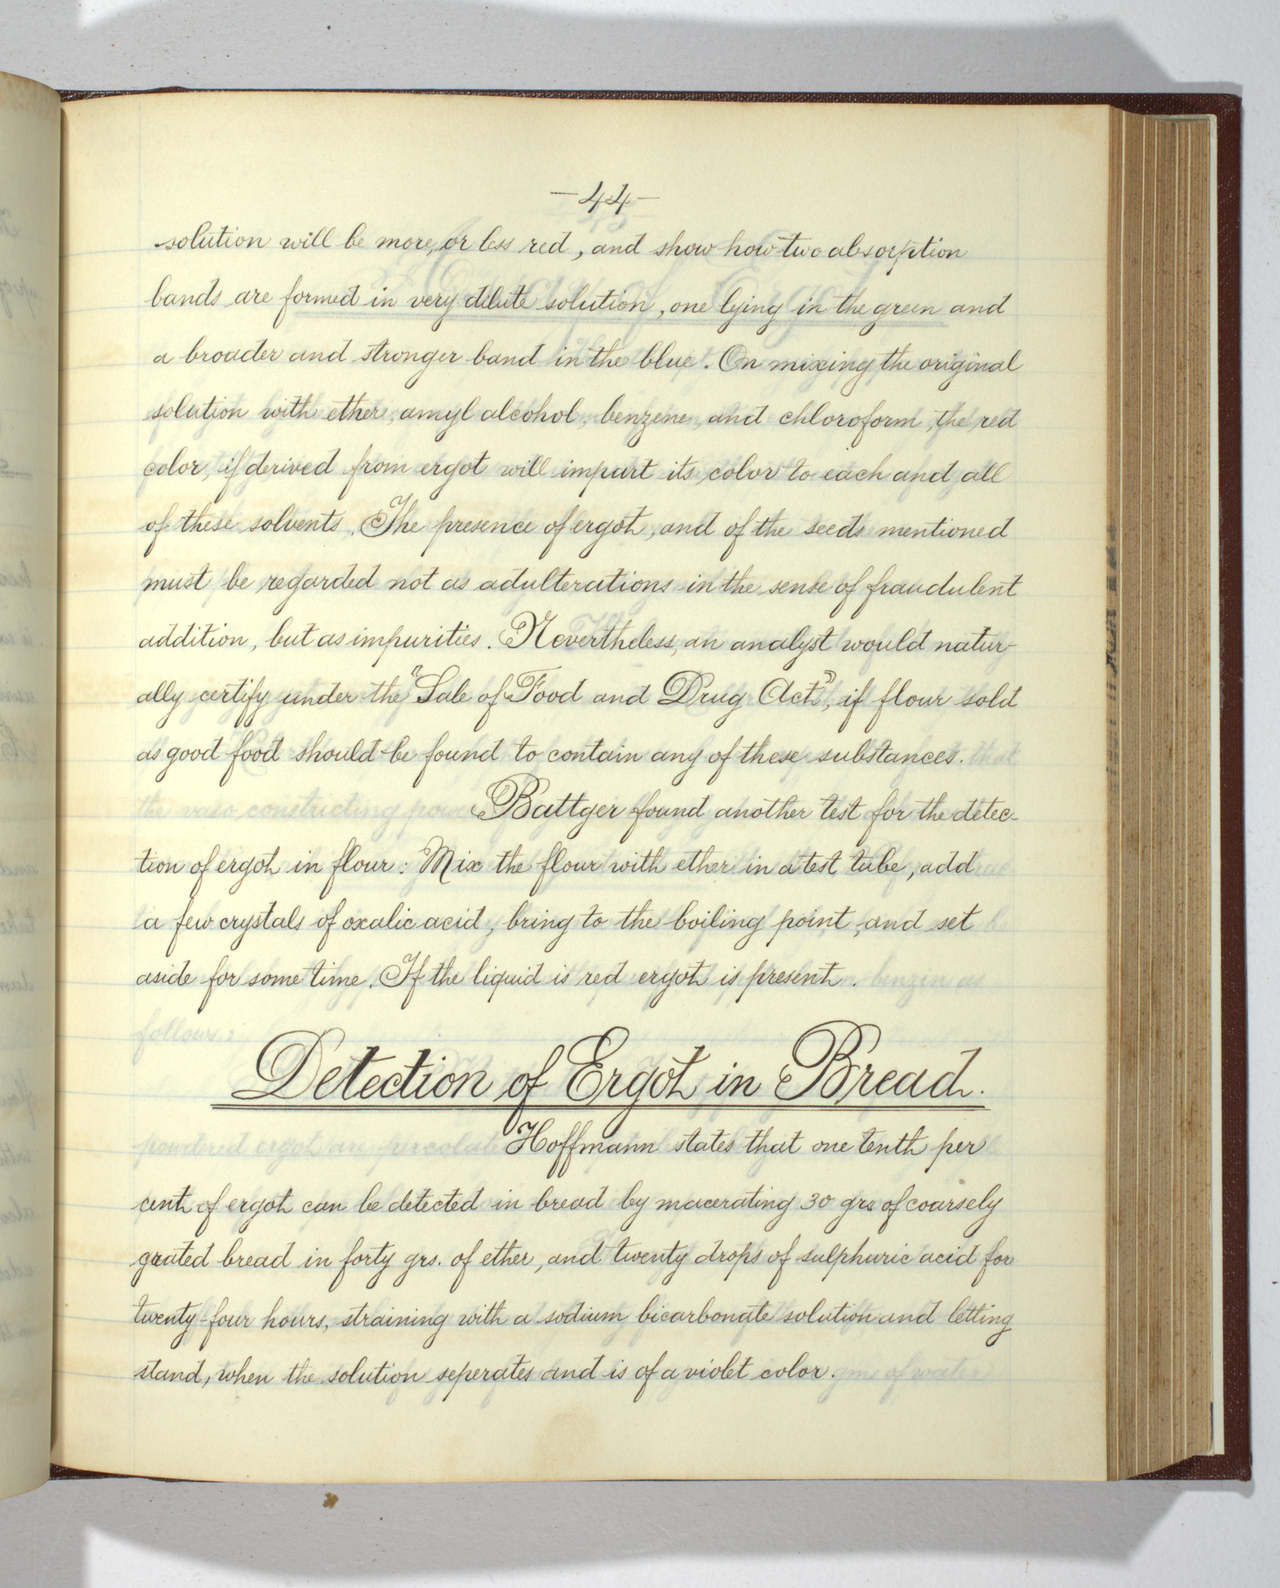 —44—
solution will be more, or less red, and show how two absorption
bands are formed in very dilute solution, one lying in the green and
a broader and stronger band in the blue. On mixing the original
solution with ether, amyl alcohol, benzene, and chloroform, the red
color, if derived from ergot will impart its color to each and all
of these solvents. The presence of ergot, and of the seeds mentioned
must be regarded not as adulterations in the sense of fraudulent
addition, but as impurities. Nevertheless, an analyst would natur-
ally certify under the "Sale of Food and Drug Act", if flour sold
as good food should be found to contain any of these substances.
Battger found another test for the detec-
tion of ergot in flour: Mix the flour with ether in a test tube, add
a few crystals of oxalic acid, bring to the boiling point, and set
aside for some time. If the liquid is red ergot is present.
Detection of Ergot in Bread.
Hoffmann states that one tenth per
cent of ergot can be detected in bread by macerating 30 grs of coarsely
grated bread in forty grs. of ether, and twenty drops of sulphuric acid for
twenty-four hours, straining with a sodium bicarbonate solution and letting
stand, when the solution seperates and is of a violet color.